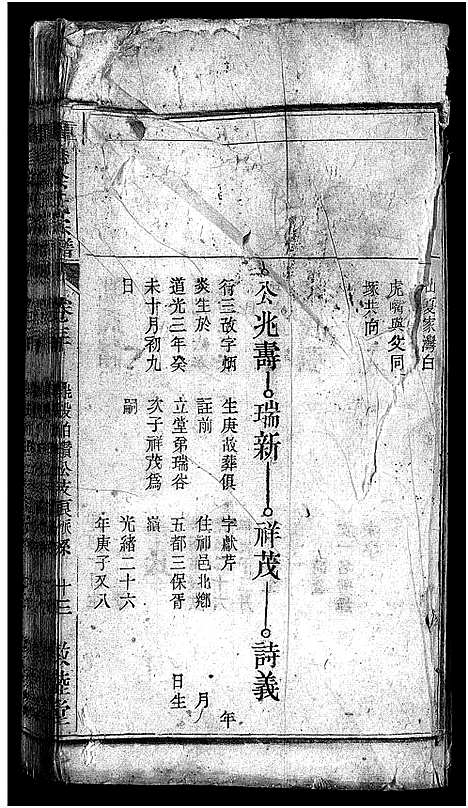 山夏家灣白
虎嘴與父同
塚共向
公兆壽 瑞新 祥茂 詩義
行三改字炳
炎生於
道光三年癸
未十月初九
日
生庚故葬俱
註前
立堂弟瑞谷
次子祥茂為
嗣
字獻芹
住神邑北鄉
五都三保胥
嶺
光緒二十六
年庚子又八
年
月
日生
宗譜
卷
十三
敦睦堂